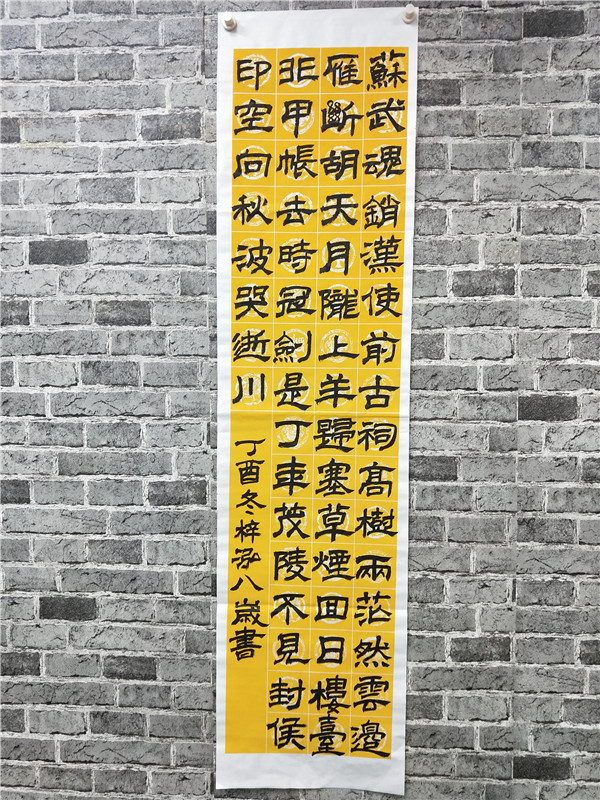 蘇武魂銷漢使前古祠髙樹兩茫然雲邊
雁斷胡天月隴上羊歸塞草煙回日樓臺
非甲帳去時冠劍是丁年茂陵不見封侯
印空向秋波哭逝川
丁酉冬梓泓八歲書